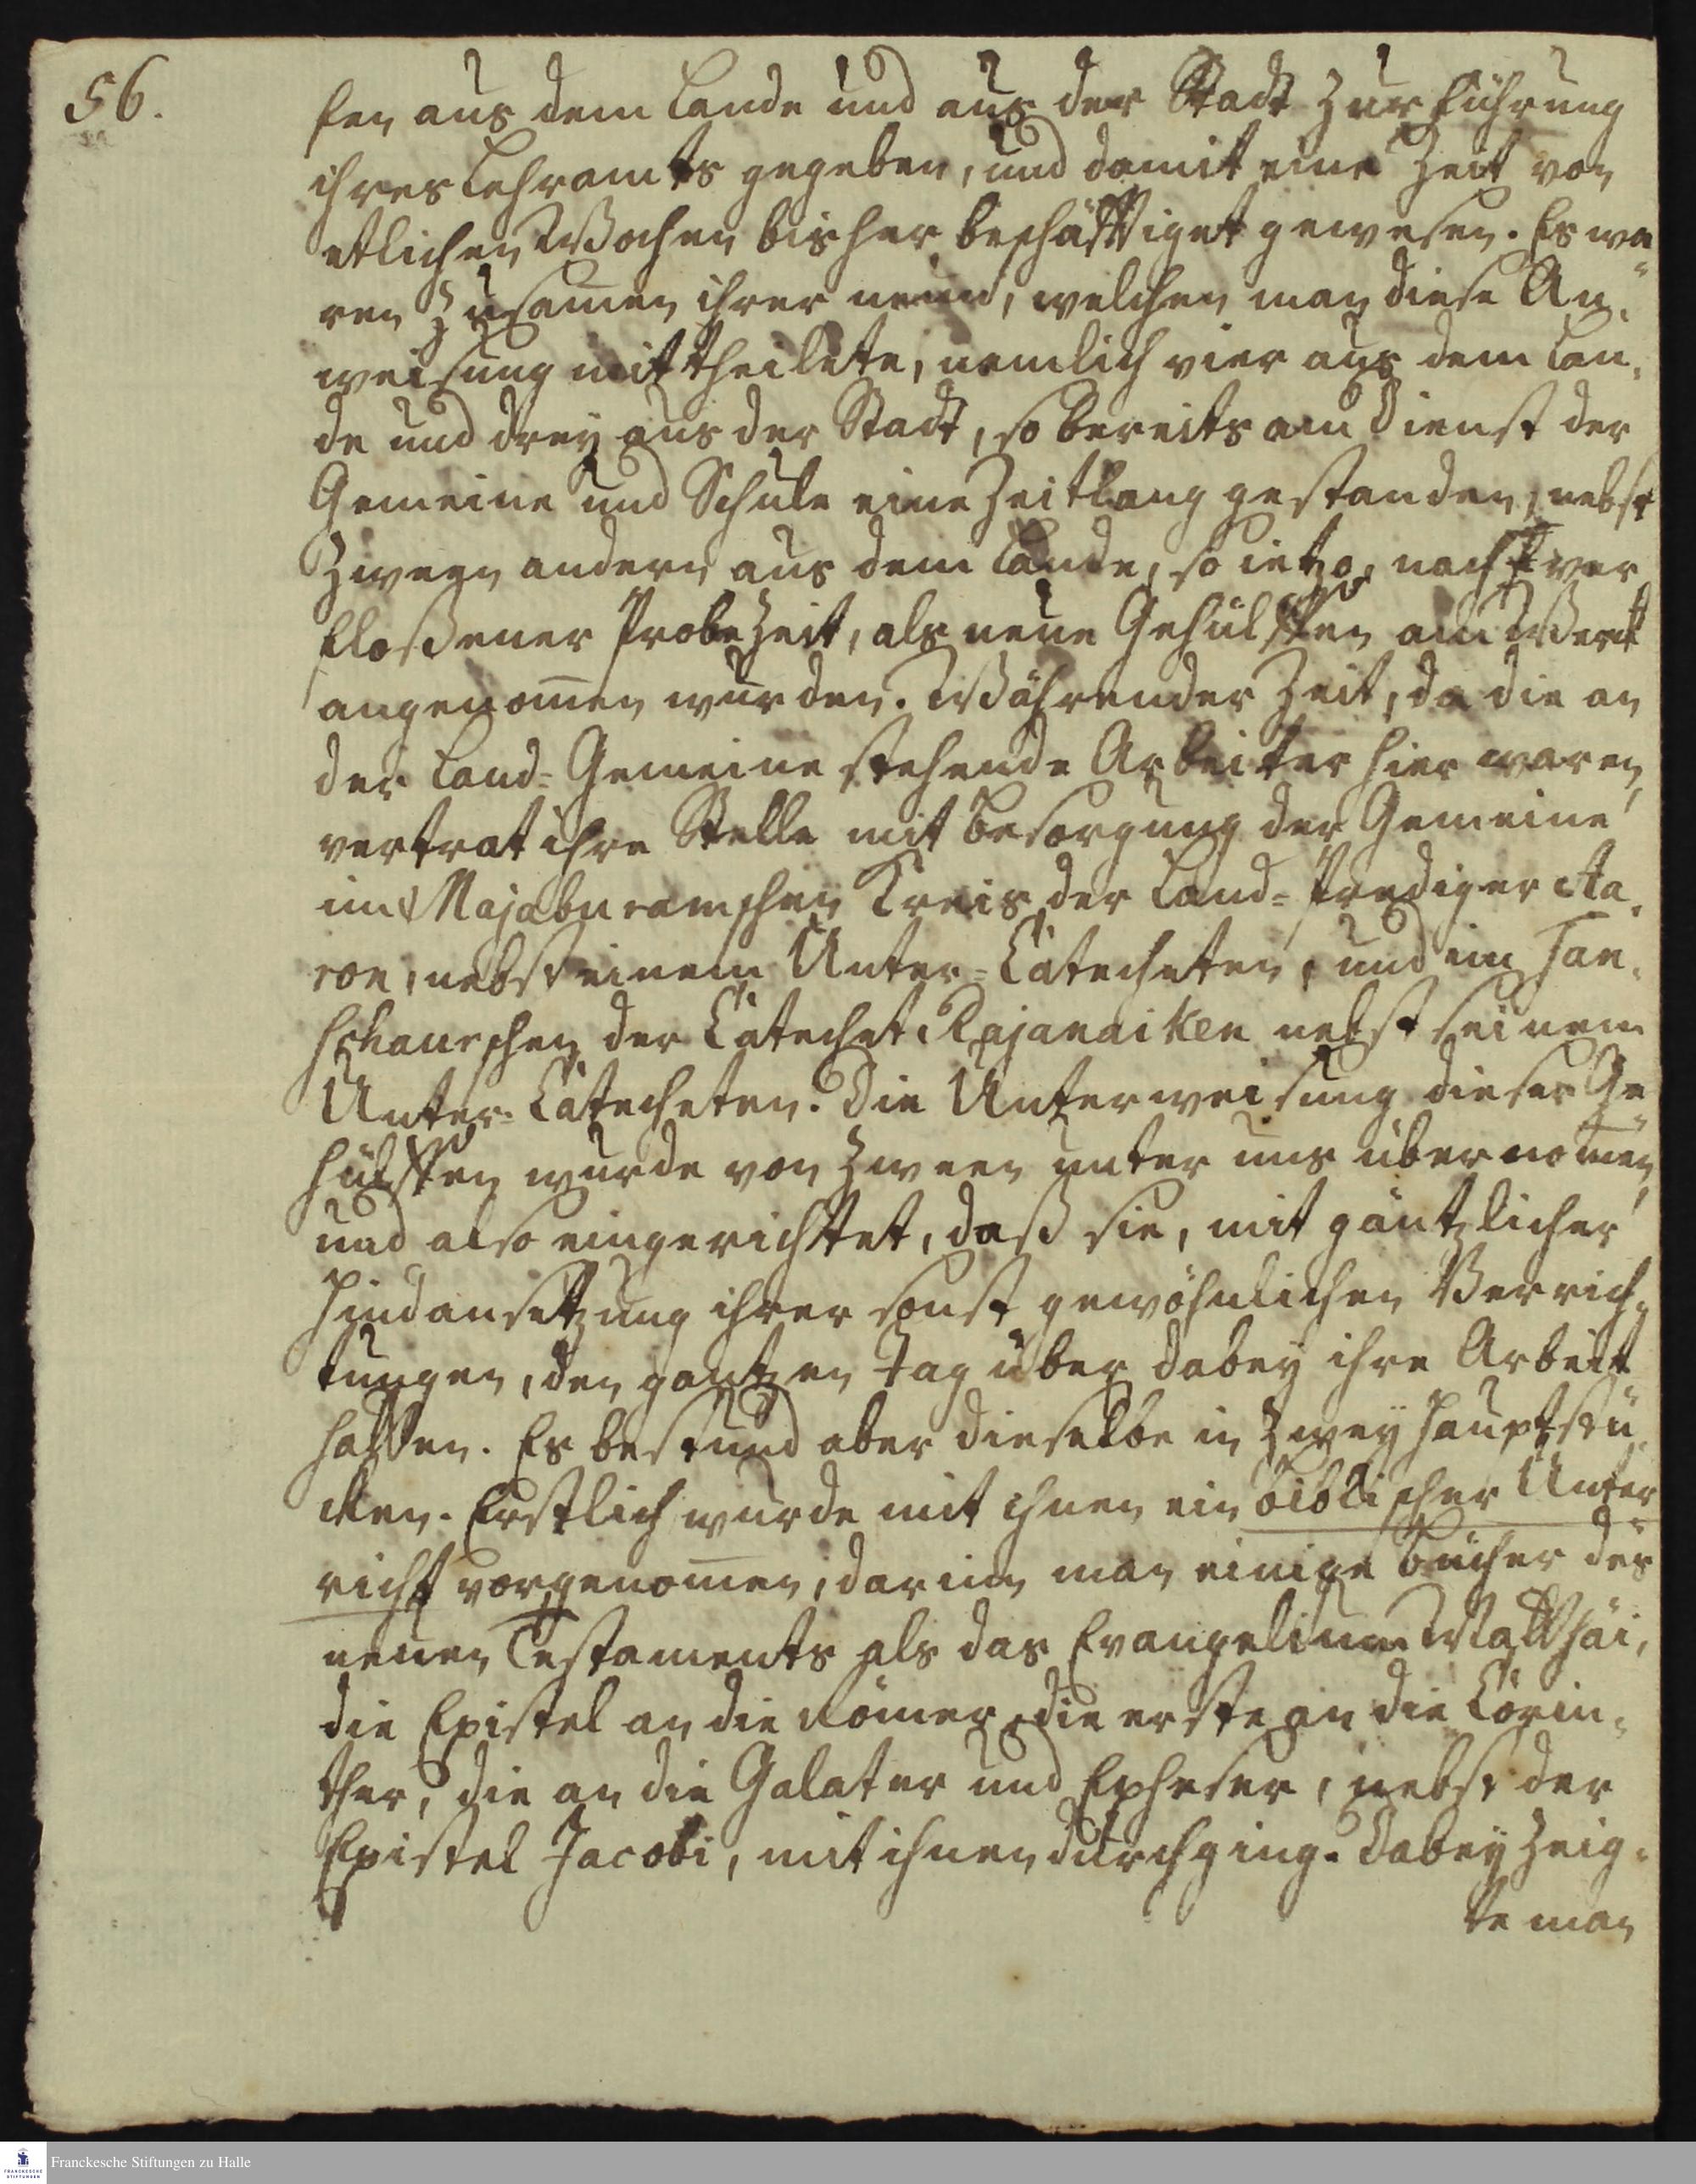 56.
fen aus dem Lande und aus der Stadt zur Führung
ihres Lehramts gegeben, und damit eine Zeit von
etlichen Wochen bisher beschäfftiget gewesen. Es wa-
ren zusam̅en ihrer neun, welchen man diese An-
weisung mittheilete, nemlich vier aus dem Lan-
de und drey aus der Stadt, so bereits am Dienst der
Gemeine und Schule eine Zeitlang gestanden, nebst
zweyn andern aus dem Lande, so ietzo, nach ver
floßener Probezeit, als neue Gehülffen am Werk
angenom̅en wurden. Währender Zeit, da die an
der Land-Gemeine stehende Arbeiter hier waren,
vertrat ihre Stelle mit Besorgung der Gemeine
im Majaburamschen Kreis der Land-Prediger Aa-
ron, nebst einem Unter-Catecheten, und im Tan-
schaurschen der Catechet Rajanaiken nebst seinem
Unter-Catecheten. Die Unterweisung dieser Ge-
hülffen wurde von zween unter uns übernom̅en,
und also eingerichtet, daß sie, mit gäntzlicher
Hindansetzung ihrer sonst gewöhnlichen Verrich-
tungen, den gantzen Tag über dabey ihre Arbeit
hatten. Es bestund aber dieselbe in zwey Hauptstü-
cken. Erstlich wurde mit ihnen ein biblischer Unter
richt vorgenom̅en, darinn man einige Bücher des
neuen Testaments als das Evangelium Matthäi,
die Epistel an die Römer, die erste an die Corin-
ther, die an die Galater und Epheser, nebst der
Epistel Jacobi, mit ihnen durchging. Dabey zeig-
te man
Franckesche Stiftungen zu Halle
FRANCKESCHE
STIFTUNGEN